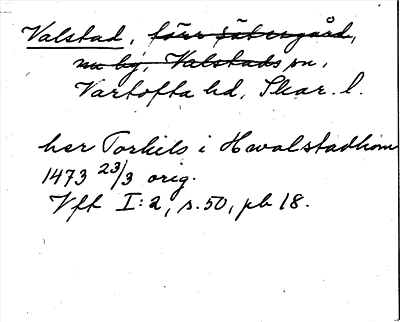 Valstad, förr sätesgård,
nu by, Valstads sn,
Vartofta hd, Skar. l.
her Torkils i Hwalstadhom
1473 23/3 orig.
Vft I:2, s. 50, pb 18.